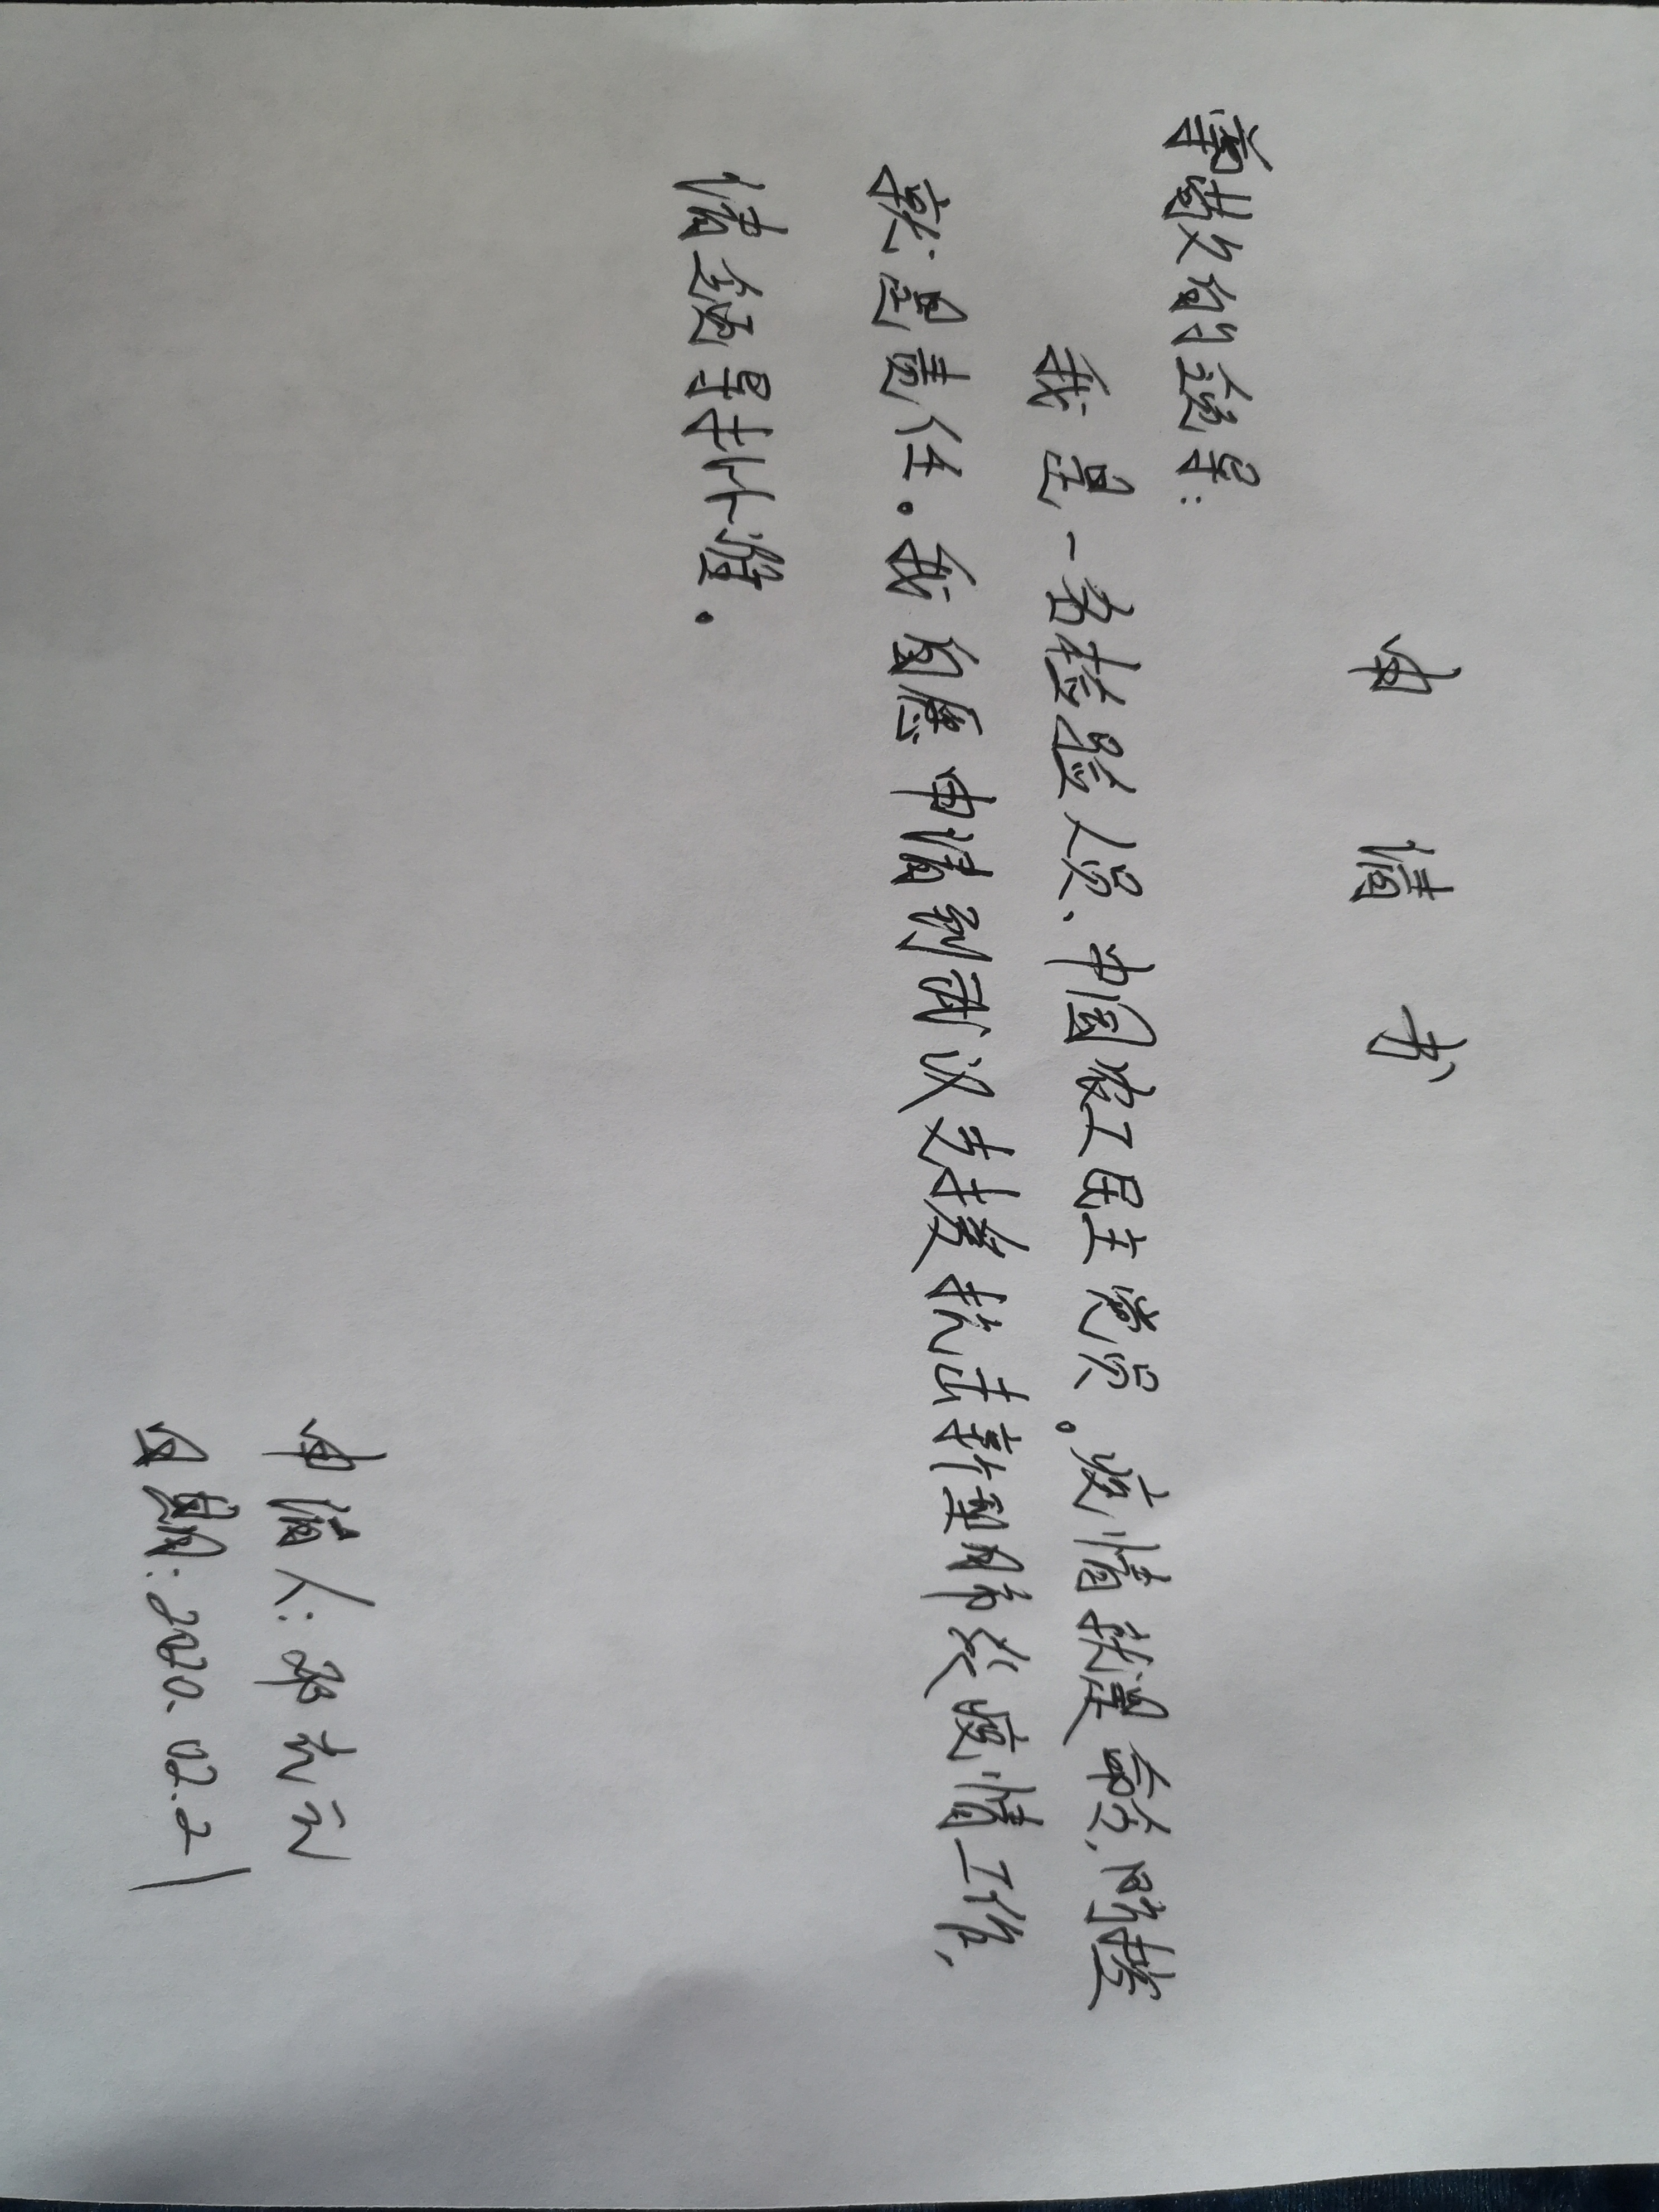 申请书
尊敬的领导：
我是一名检验人员、中国农工民主党员。疫情就是命令，防控
就是责任。我自愿申请到武汉支援抗击新型肺炎疫情工作，
请领导批准。
申请人：
日期：2020.02.21